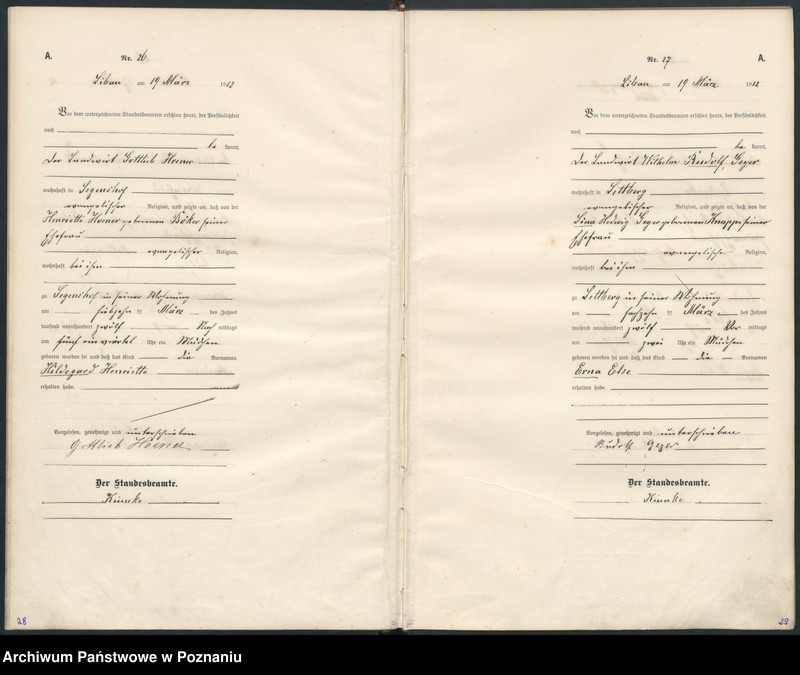 A.
Nr. 26
Libau am 19 März 1912
Vor dem unterzeichneten Standesbeamten erschien heute, der Persönlichkeit
nach
be kannt,
der Landwirt Gottlieb
wohnhaft in Segenshof
evangelischer Religion, und zeigte an, daß von der
Henriette geborenen Böker seiner
Ehefrau
evangelischer Religion,
wohnhaft bei ihm
zu Segenshof in seiner Wohnung
am ten März des Jahres
tausend neunhundert zwölf Nach mittags
um fünf ein viertel Uhr ein Mädchen
geboren worden sei und daß das Kind die Vornamen
Hildegard Henriette
erhalten habe.
Vorgelesen, genehmigt und unterschrieben
Gottlieb
Der Standesbeamte.
28
A.
Nr. 27
Libau am 19 März 1912
Vor dem unterzeichneten Standesbeamten erschien heute, der Persönlichkeit
nach
be kannt,
der Landwirt Wilhelm Rudolf Geger
wohnhaft in Lettberg
evangelischer Religion, und zeigte an, daß von der
Lina Hedwig Geger geborenen Knappe seiner
Ehefrau
evangelischer Religion,
wohnhaft bei ihm
zu Lettberg in seiner Wohnung
am ten März des Jahres
tausend neunhundert zwölf Vor mittags
um zwei Uhr ein Mädchen
geboren worden sei und daß das Kind die Vornamen
Erna Else
erhalten habe.
Vorgelesen, genehmigt und unterschrieben
Rudolf Geger
Der Standesbeamte.
29
Archiwum Państwowe w Poznaniu